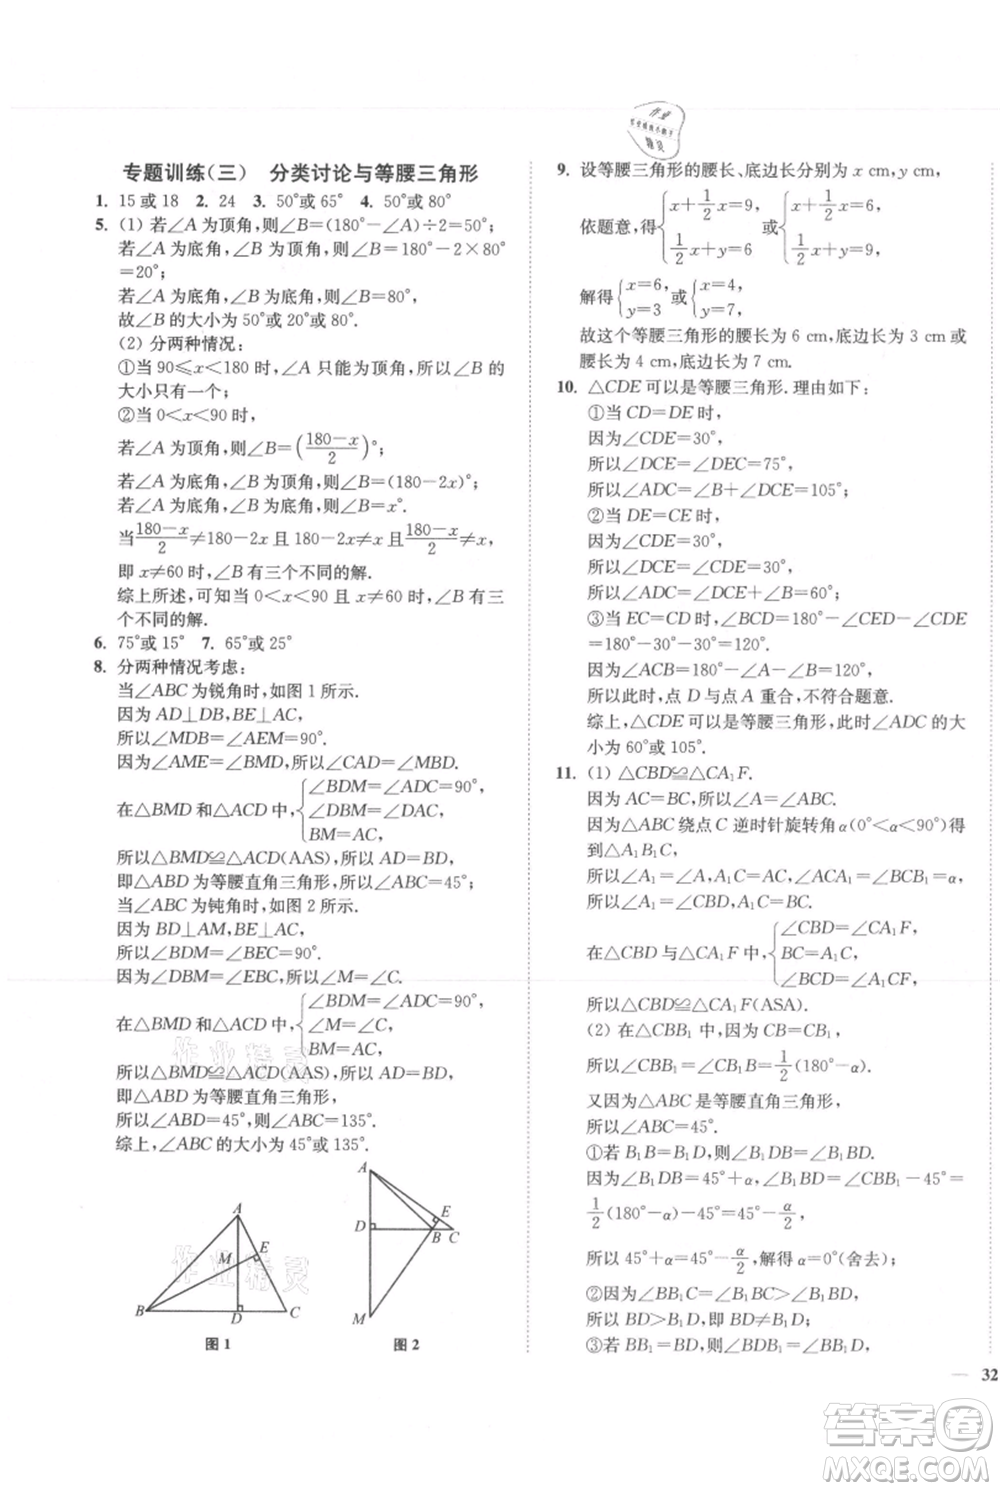 专题训练(三) 分类讨论与等腰三角形
1. 15或18 2. 24 3. 50°或65° 4. 50°或80°
5. (1) 若∠A为顶角,则∠B=(180°-∠A)÷2=50°;
若∠A为底角,∠B为顶角,则∠B=180°-2×80°
=20°;
若∠A为底角,∠B为底角,则∠B=80°,
故∠B的大小为50°或20°或80°.
(2) 分两种情况:
①当90≤x<180时,∠A只能为顶角,所以∠B的
大小只有一个;
②当0<x<90时,
若∠A为顶角,则∠B=((180-x)/2)°;
若∠A为底角,∠B为顶角,则∠B=(180-2x)°;
若∠A为底角,∠B为底角,则∠B=x°.
当(180-x)/2≠180-2x且180-2x≠x且(180-x)/2≠x,
即x≠60时,∠B有三个不同的解.
综上所述,可知当0<x<90且x≠60时,∠B有三
个不同的解.
6. 75°或15° 7. 65°或25°
8. 分两种情况考虑:
当∠ABC为锐角时,如图1所示.
因为AD⊥DB,BE⊥AC,
所以∠MDB=∠AEM=90°.
因为∠AME=∠BMD,所以∠CAD=∠MBD.
在△BMD和△ACD中,{∠BDM=∠ADC=90°,
∠DBM=∠DAC,
BM=AC,
所以△BMD≌△ACD(AAS),所以AD=BD,
即△ABD为等腰直角三角形,所以∠ABC=45°;
当∠ABC为钝角时,如图2所示.
因为BD⊥AM,BE⊥AC,
所以∠BDM=∠BEC=90°.
因为∠DBM=∠EBC,所以∠M=∠C.
在△BMD和△ACD中,{∠BDM=∠ADC=90°,
∠M=∠C,
BM=AC,
所以△BMD≌△ACD(AAS),所以AD=BD,
即△ABD为等腰直角三角形,
所以∠ABD=45°,则∠ABC=135°.
综上,∠ABC的大小为45°或135°.
A
M
E
B
D
C
图1
A
D
E
B
C
M
图2
9. 设等腰三角形的腰长、底边长分别为x cm,y cm,
依题意,得{x+1/2x=9, 1/2x+y=6 或{x+1/2x=6, 1/2x+y=9,
解得{x=6, y=3 或{x=4, y=7,
故这个等腰三角形的腰长为6 cm,底边长为3 cm或
腰长为4 cm,底边长为7 cm.
10. △CDE可以是等腰三角形.理由如下:
①当CD=DE时,
因为∠CDE=30°,
所以∠DCE=∠DEC=75°,
所以∠ADC=∠B+∠DCE=105°;
②当DE=CE时,
因为∠CDE=30°,
所以∠DCE=∠CDE=30°,
所以∠ADC=∠DCE+∠B=60°;
③当EC=CD时,∠BCD=180°-∠CED-∠CDE
=180°-30°-30°=120°.
因为∠ACB=180°-∠A-∠B=120°,
所以此时,点D与点A重合,不符合题意.
综上,△CDE可以是等腰三角形,此时∠ADC的大
小为60°或105°.
11. (1) △CBD≌△CA₁F.
因为AC=BC,所以∠A=∠ABC.
因为△ABC绕点C逆时针旋转角α(0°<α<90°)得
到△A₁B₁C,
所以∠A₁=∠A,A₁C=AC,∠ACA₁=∠BCB₁=α,
所以∠A₁=∠CBD,A₁C=BC.
在△CBD与△CA₁F中,{∠CBD=∠CA₁F,
BC=A₁C,
∠BCD=∠A₁CF,
所以△CBD≌△CA₁F(ASA).
(2) 在△CBB₁中,因为CB=CB₁,
所以∠CBB₁=∠CB₁B=1/2(180°-α).
又因为△ABC是等腰直角三角形,
所以∠ABC=45°.
①若B₁B=B₁D,则∠B₁DB=∠B₁BD.
因为∠B₁DB=45°+α,∠B₁BD=∠CBB₁-45°=
1/2(180°-α)-45°=45°-α/2,
所以45°+α=45°-α/2,解得α=0°(舍去);
②因为∠BB₁C=∠B₁BC>∠B₁BD,
所以BD>B₁D,即BD≠B₁D;
③若BB₁=BD,则∠BDB₁=∠BB₁D,
32
作业精灵
作业精灵
答案卷
MXQE.COM